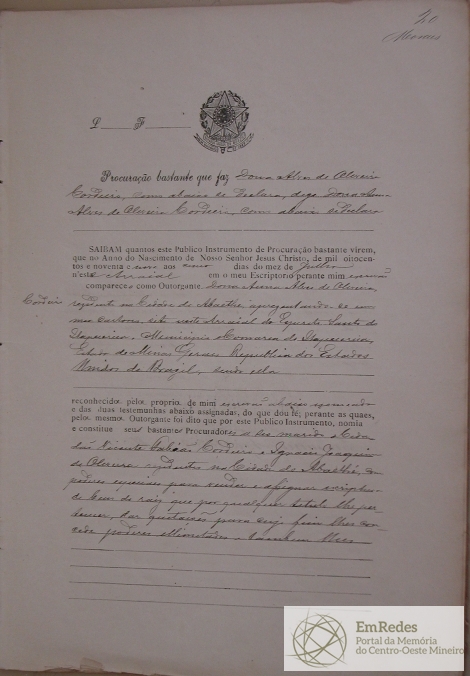 20
L F
Procuração bastante que faz Dona Alves de Oliveira
Cordeiro, como abaixo se declara, digo Dona Anna
Alves de Oliveira Cordeiro, como abaixo se declara
SAIBAM quantos este Publico Instrumento de Procuração bastante virem,
que no Anno do Nascimento de Nosso Senhor Jesus Christo, de mil oitocen-
tos e noventa e aos dias do mez de Julho
n'este Arraial em o meu Escriptorio perante mim escrivão
compareceo como Outorgante Dona Anna Alves de Oliveira
Cordeiro
na Cidade de Abaethé
este Arraial do Espirito Santo de
Itapecerica, Municipio e Comarca de Itapecerica,
Estado de Minas Geraes Republica dos Estados
Unidos do Brazil,
reconhecidos pelos proprios de mim escrivão abaixo nomeado
e das duas testemunhas abaixo assignadas, do que dou fé; perante as quaes,
pelos mesmos Outorgante foi dito que por este Publico Instrumento, nomia
e constitue seus bastantes Procuradores a seu marido o Cida-
dão Vicente Cordeiro e Ignacio Joaquim
de Oliveira na Cidade de Abaethé,
poderes especiaes para vender e assignar escriptura
de bens de raiz que por qualquer titulo lhe per-
tencer, dar quitação para cujo fim lhes con-
cede poderes illimitados e tambem lhes
EmRedes
Portal da Memória
do Centro-Oeste Mineiro